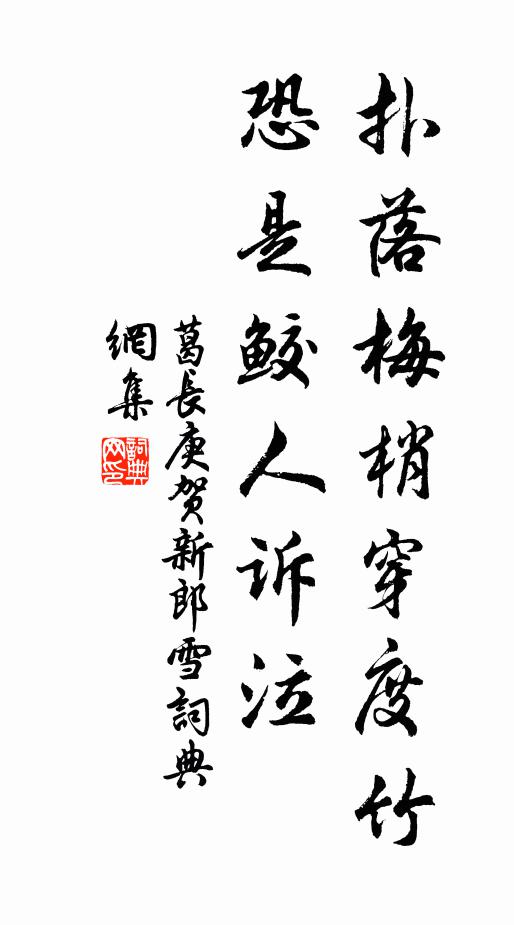 扑落梅梢穿度竹
恐是鲛人诉泣
葛長庚贺新郎雪詞典
網集
詞典网印